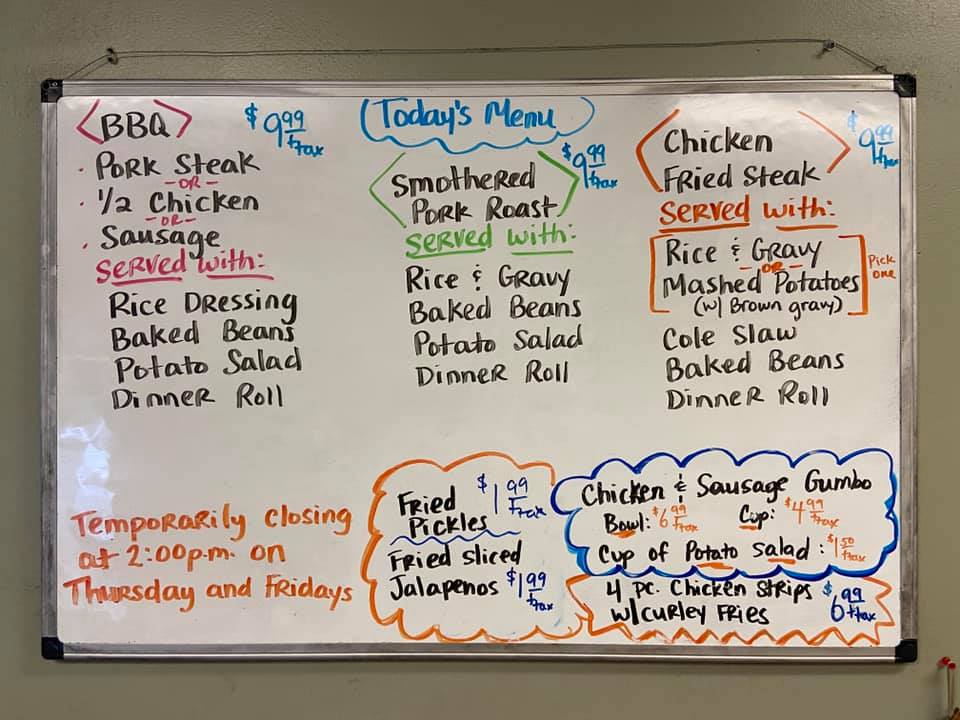 Today's Menu
BBQ
$9.99 +tax
· Pork Steak
-OR-
· 1/2 Chicken
-OR-
· Sausage
Served with:
Rice Dressing
Baked Beans
Potato Salad
Dinner Roll
Smothered
Pork Roast
$9.99 +tax
Served with:
Rice & Gravy
Baked Beans
Potato Salad
Dinner Roll
Chicken
Fried Steak
$9.99 +tax
Served with:
Rice & Gravy
-OR-
Mashed Potatoes
(w/ Brown gravy)
Pick
one
Cole Slaw
Baked Beans
Dinner Roll
Temporarily closing
at 2:00p.m. on
Thursday and Fridays
Fried
Pickles $1.99 +tax
Fried sliced
Jalapenos $1.99 +tax
Chicken & Sausage Gumbo
Bowl: $6.99 +tax Cup: $4.99 +tax
Cup of Potato salad: $1.50 +tax
4 pc. Chicken Strips
w/curley Fries $6.99 +tax